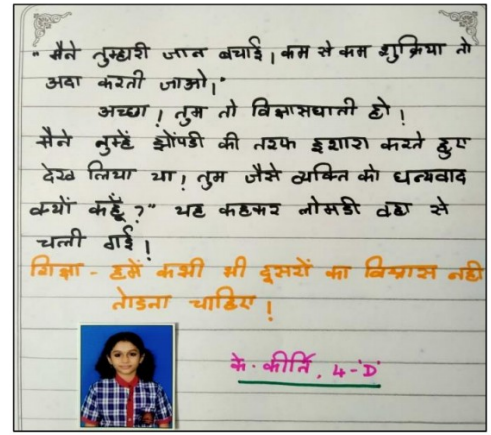 " मैने तुम्हारी जान बचाई। कम से कम शुक्रिया तो
अदा करती जाओ।"
अच्छा! तुम तो विश्वासघाती हो!
मैने तुम्हें झोंपडी की तरफ इशारा करते हुए
देख लिया था! तुम जैसे व्यक्ति को धन्यवाद
क्यों कहूँ?" यह कहकर लोमडी वहा से
चली गई!
शिक्षा - हमें कभी भी दूसरों का विश्वास नही
तोडना चाहिए!
के. कीर्ति, 4-'D'